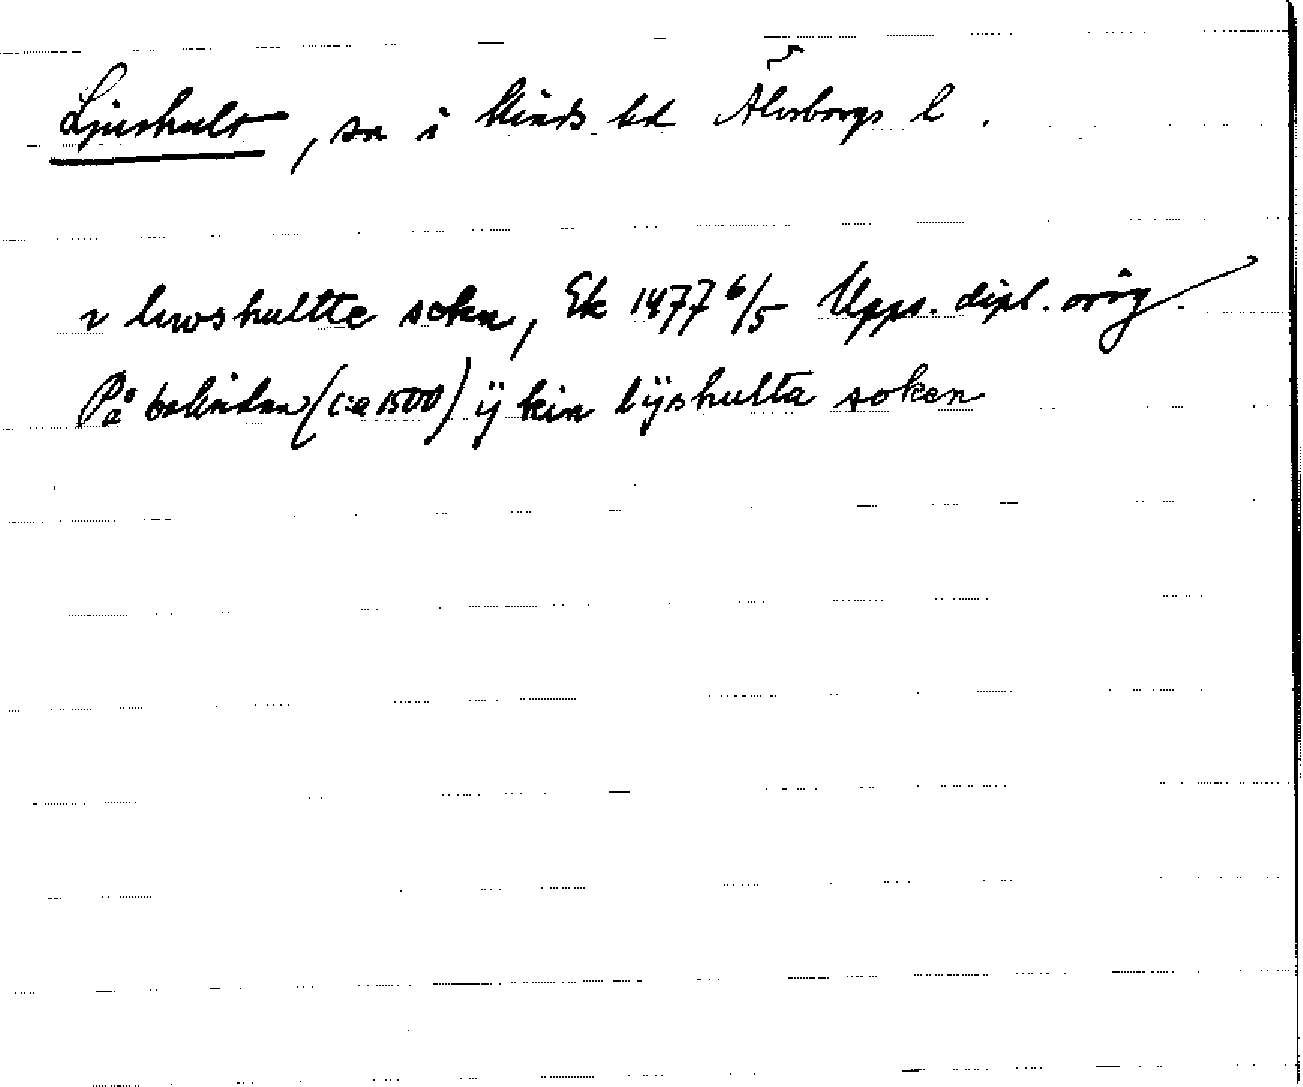 Ljushult, sn i Kinds hd Älvsborgs l.
v lwshultte sokn, Ek 1477 6/5 Upps. dipl. orig.
På baksidan (c:a 1500) ÿ kin lÿshulta soken